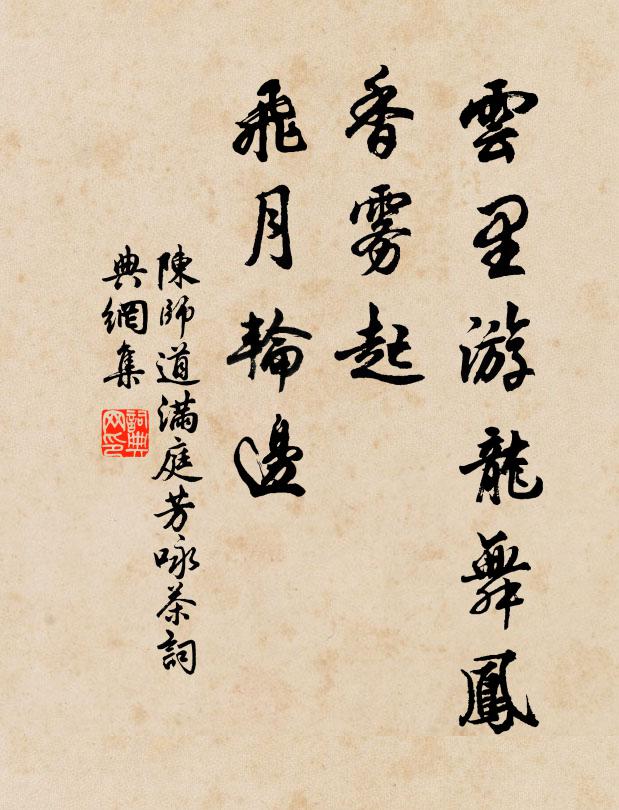 雲里游龍舞鳳
香雾起
飛月輪邊
陳師道滿庭芳咏茶詞
典網集
詞典网印